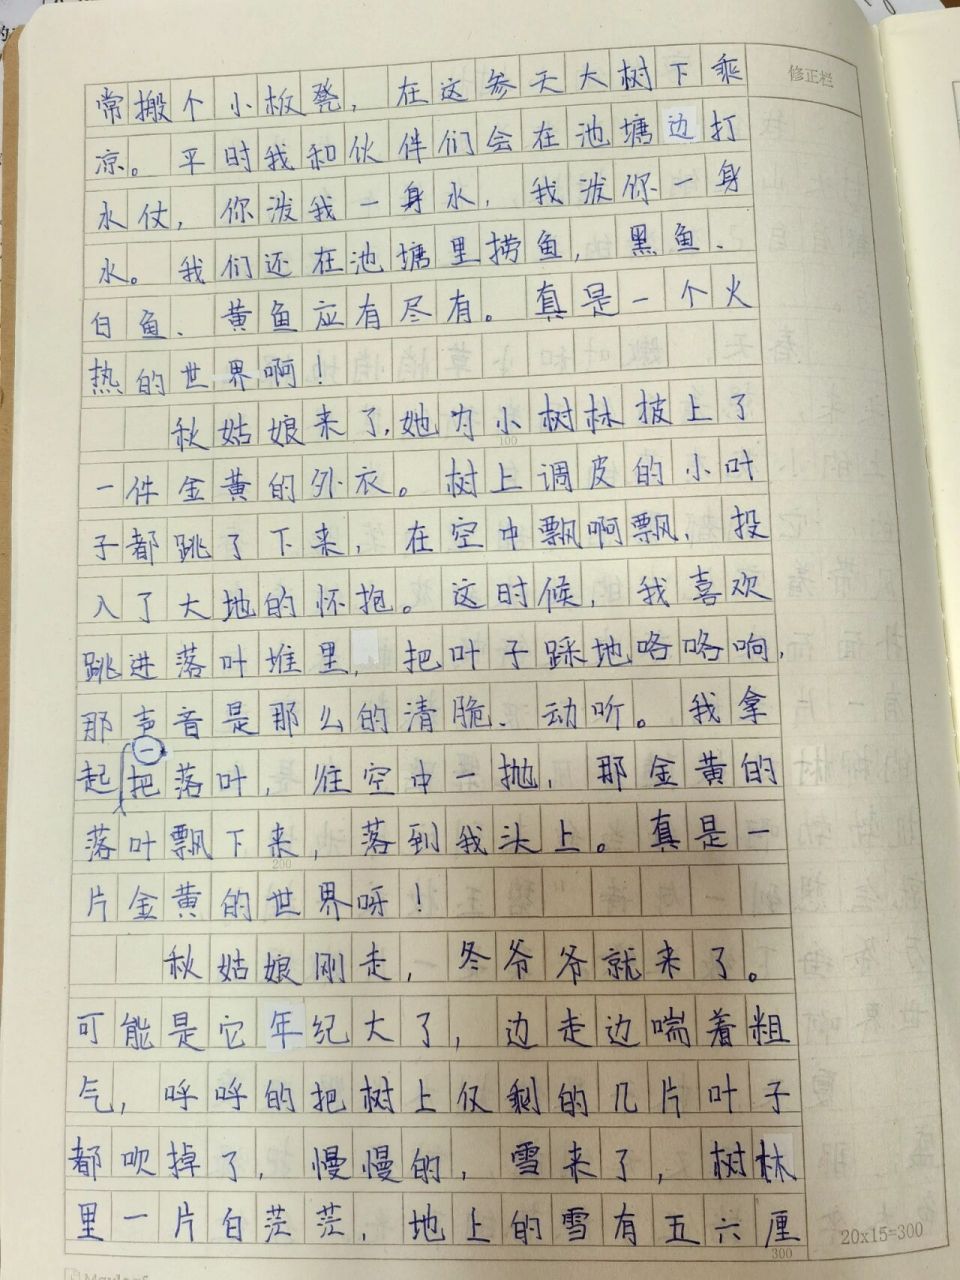 修正栏
常搬个小板凳，在这参天大树下乘
凉。平时我和伙伴们会在池塘边打
水仗，你泼我一身水，我泼你一身
水。我们还在池塘里捞鱼，黑鱼、
白鱼、黄鱼应有尽有。真是一个火
热的世界啊！
秋姑娘来了，她为小树林披上了
100
一件金黄的外衣。树上调皮的小叶
子都跳了下来，在空中飘啊飘，投
入了大地的怀抱。这时候，我喜欢
跳进落叶堆里，把叶子踩地咯咯响，
那声音是那么的清脆、动听。我拿
起一把落叶，往空中一抛，那金黄的
落叶飘下来，落到我头上。真是一
200
片金黄的世界呀！
秋姑娘刚走，冬爷爷就来了。
可能是它年纪大了，边走边喘着粗
气，呼呼的把树上仅剩的几片叶子
都吹掉了，慢慢的，雪来了，树林
里一片白茫茫，地上的雪有五六厘
300
20x15=300